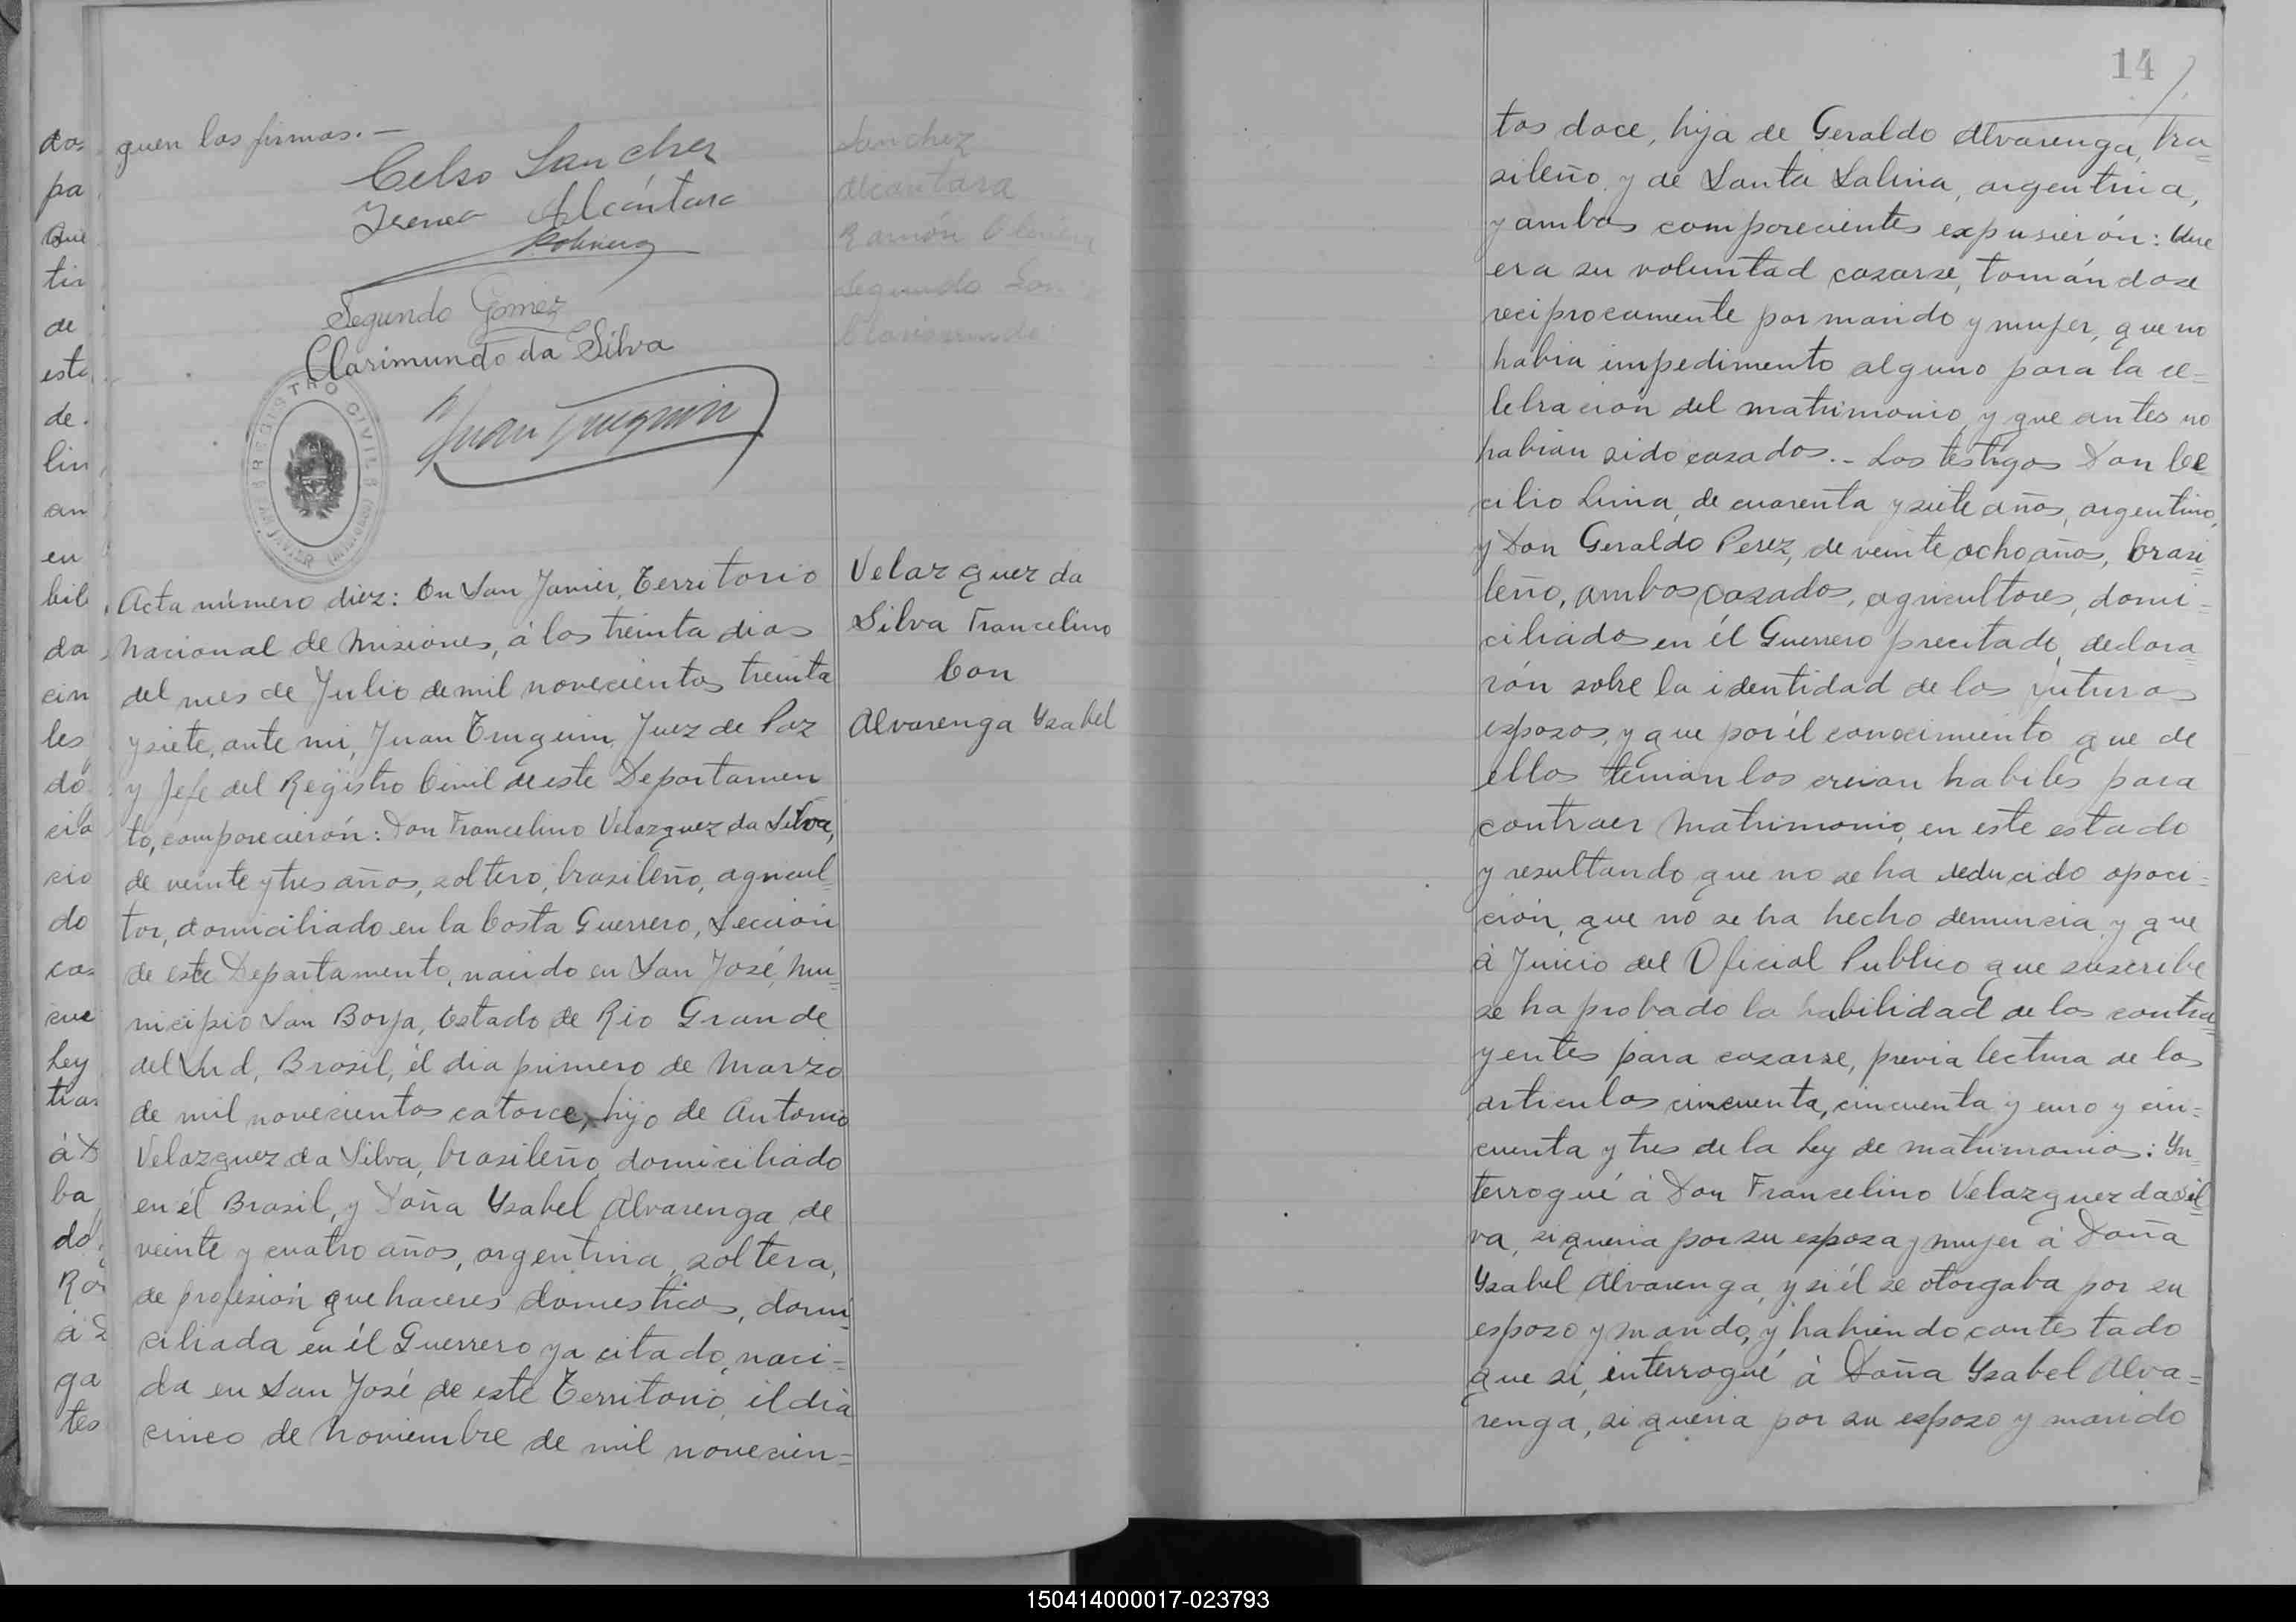 guen las firmas.-
Celso Sanchez
Alcántara
Segundo Gomez
Clarimundo da Silva
REGISTRO CIVIL
Sanchez
Alcantara
Ramón
Segundo
Clarimundo
Acta número diez: En San Javier, Territorio
Nacional de Misiones, á los treinta dias
del mes de Julio de mil novecientos treinta
y siete, ante mi, Juan Juez de Paz
y Jefe del Registro Civil de este Departamen
to, comparecierón: Don Francelino Velazquez da Silva,
de veinte y tres años, soltero, brasileño, agricul=
tor, domiciliado en la Costa Guerrero, Sección
de este Departamento, nacido en San José, Mu=
nicipio San Borja, Estado de Rio Grande
del Sud, Brasil, él dia primero de Marzo
de mil novecientos catorce, hijo de Antonio
Velazquez da Silva, brasileño, domiciliado
en él Brasil, y Doña Ysabel Alvarenga de
veinte y cuatro años, argentina, soltera,
de profesión quehaceres domesticos, domi=
ciliada en él Guerrero ya citado, naci=
da en San José de este Territorio, él dia
cinco de Noviembre de mil novecien=
Velazquez da
Silva Francelino
Con
Alvarenga Ysabel
14
tos doce, hija de Geraldo Alvarenga, bra=
sileño y de Santa Salina, argentina,
y ambos comparecientes expusierón: Que
era su voluntad casarse, tomándose
reciprocamente por marido y mujer, que no
habia impedimento alguno para la ce=
lebracion del matrimonio, y que antes no
habian sido casados.- Los testigos Don Ce
cilio Lima, de cuarenta y siete años, argentino,
y Don Geraldo Perez, de veinte ocho años, brasi
leño, ambos casados, agricultores, domi=
ciliados en él Guerrero precitado, declara=
rón sobre la identidad de los futuros
esposos, y que por él conocimiento que de
ellos tenian los creian habiles para
contraer matrimonio, en este estado
y resultando que no se ha deducido oposi=
ción, que no se ha hecho denuncia y que
á Juicio del Oficial Publico que suscribe
se ha probado la habilidad de los contra=
yentes para casarse, previa lectura de los
articulos cincuenta, cincuenta y euno y cin=
cuenta y tres de la Ley de matrimonio: Yn=
terrogué á Don Francelino Velazquez da Sil=
va, si queria por su esposa y mujer á Doña
Ysabel Alvarenga, y si él se otorgaba por su
esposo y marido, y habiendo contestado
que si, interrogué á Doña Ysabel Alva=
renga, si queria por su esposo y marido
150414000017-023793